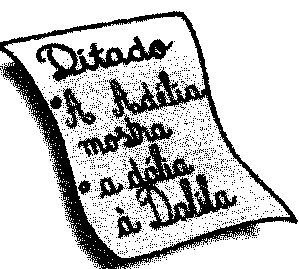 Ditado
• A Adélia
mostra
• a dália
à Dalila